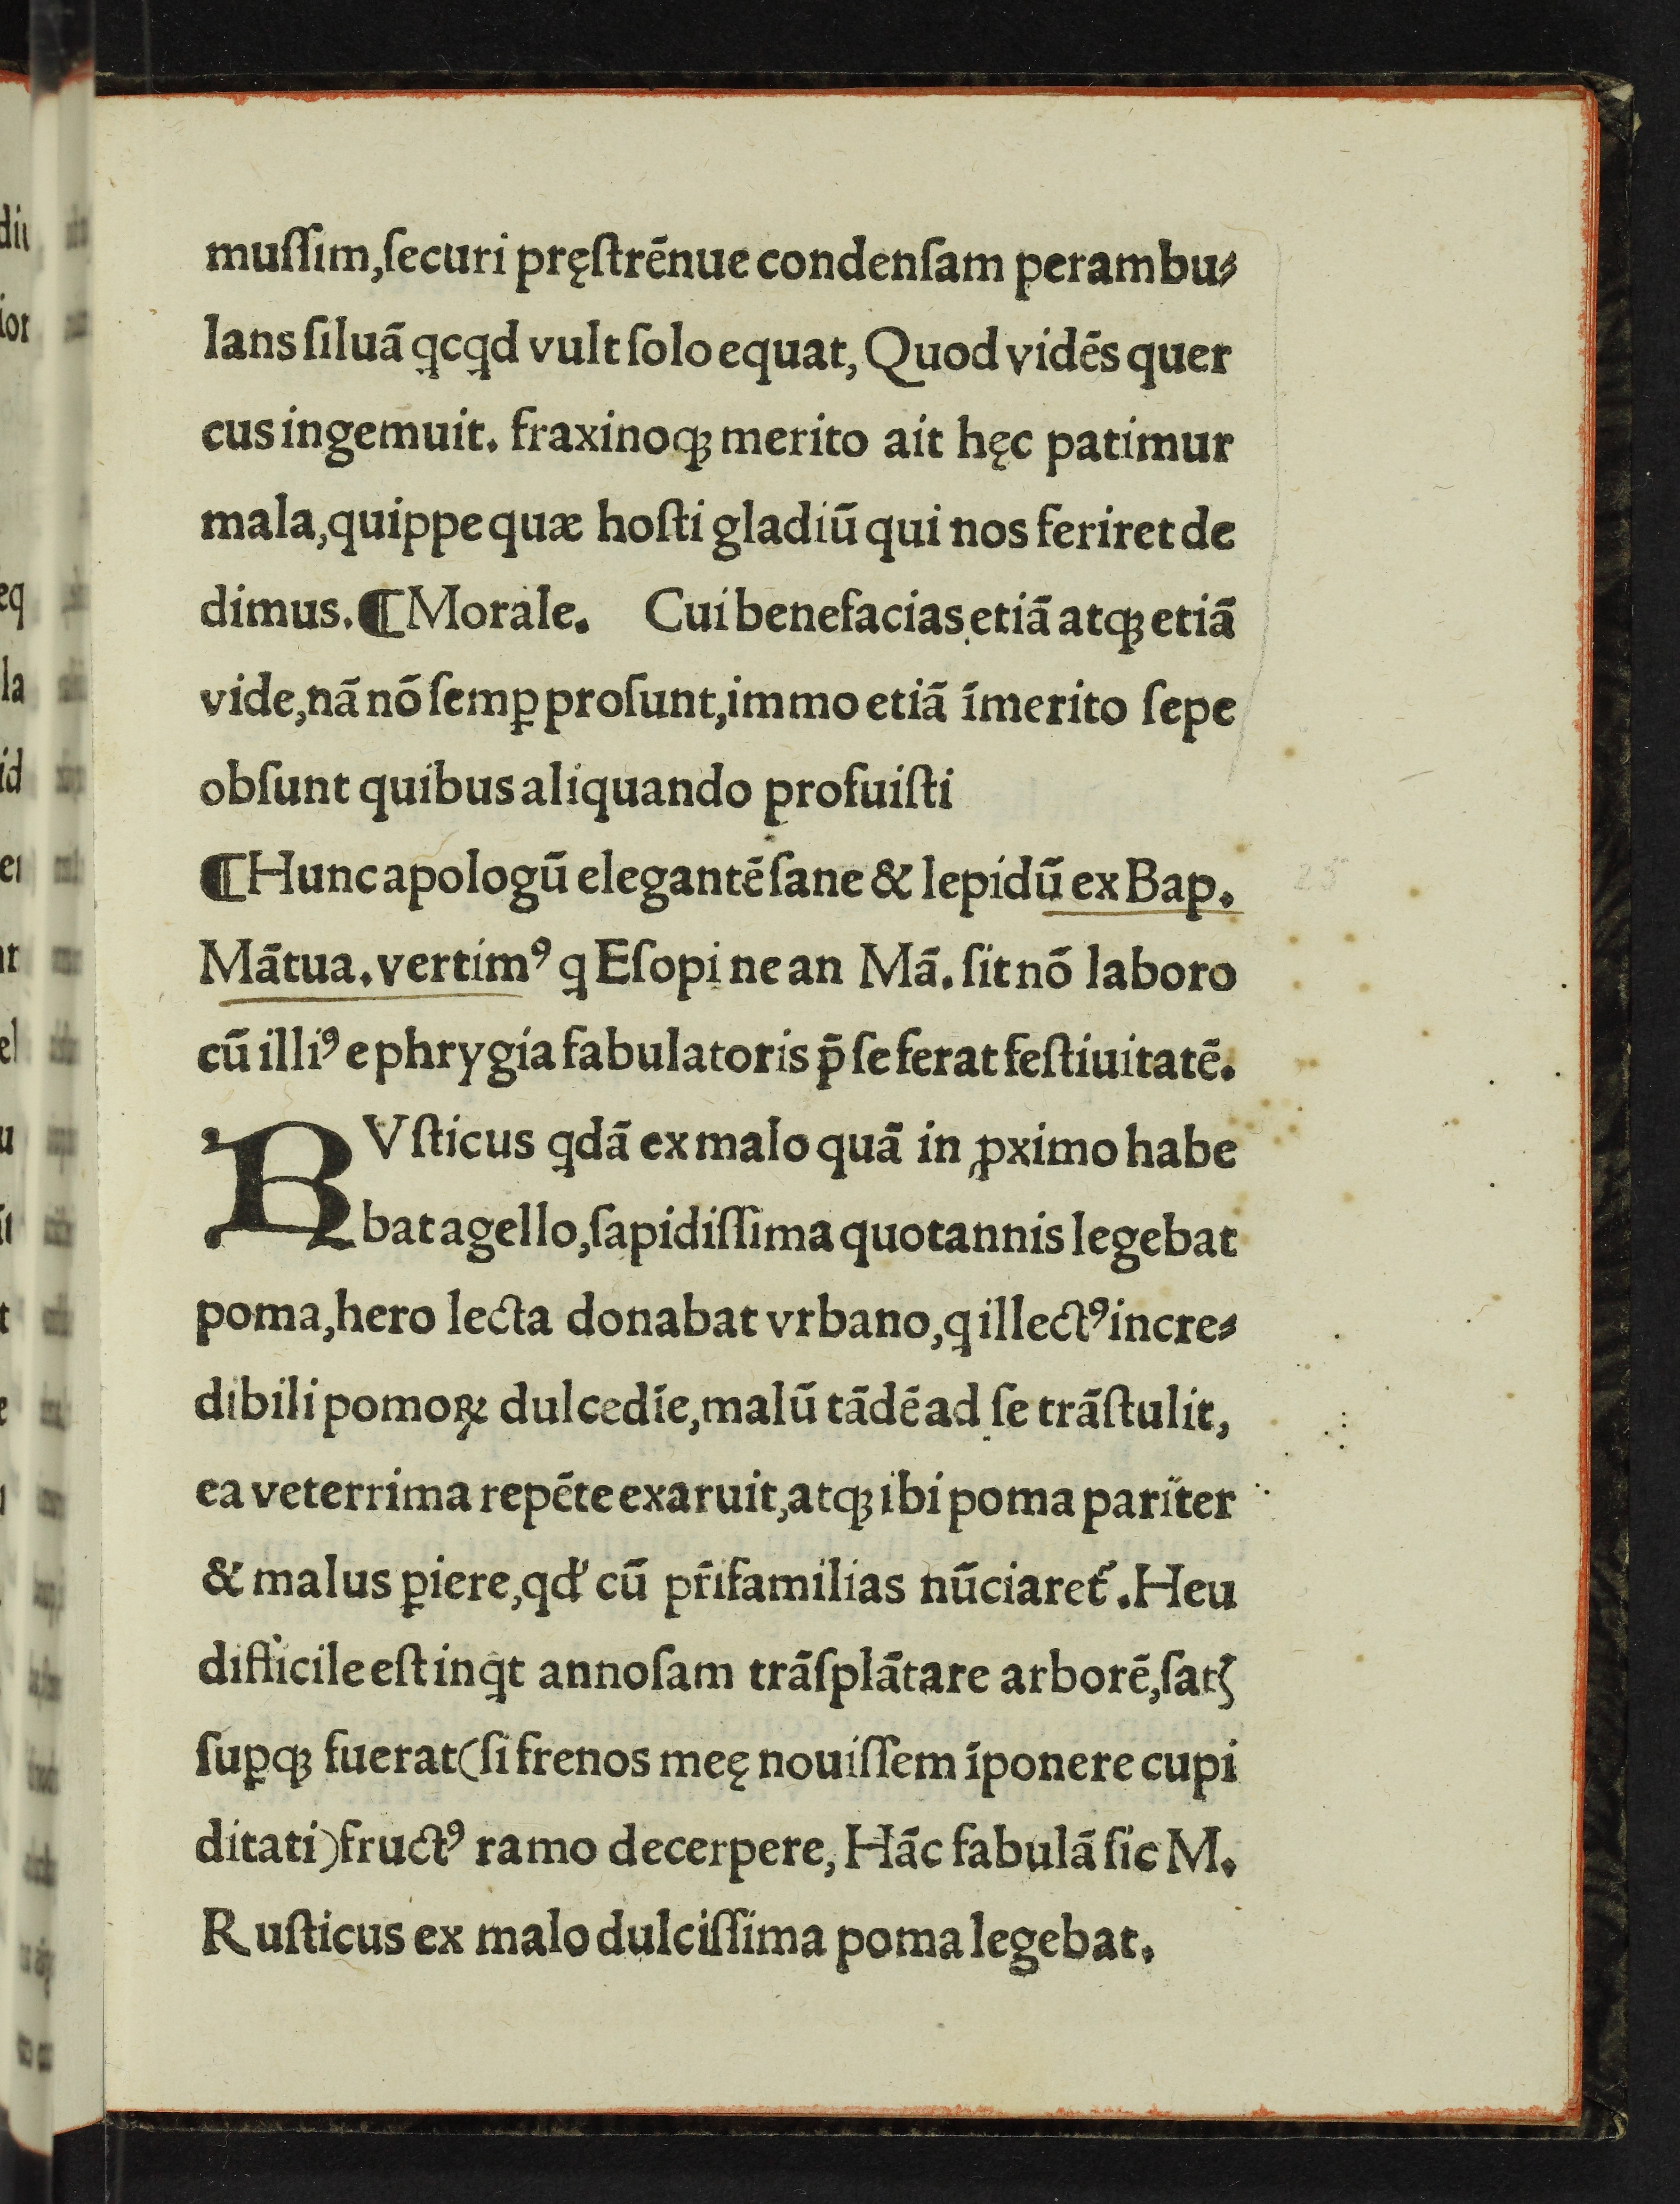 muſſim,ſecuri pręſtrēnue condenſam perambu⸗
lans ſiluā qͥcqͥd vult ſolo equat, Quod vidēs quer
cus ingemuit. fraxinoqꝫ merito ait hęc patimur
mala,quippe quæ hoſti gladiū qui nos feriret de
dimus.¶Morale. Cui benefacias etiā atqꝫ etiā
vide,nā nō ſemꝑ proſunt,immo etiā īmerito ſepe
obſunt quibus aliquando profuiſti
¶Hunc apologū elegantē ſane & lepidū ex Bap.
Mātua.vertimꝰ q Eſopi ne an Mā. ſit nō laboro
cū illiꝰ e phrygia fabulatoris p̄ ſe ferat feſtiuitatē.
RVſticus qdā ex malo quā in ꝓximo habe
bat agello,ſapidiſſima quotannis legebat
poma,hero lecta donabat vrbano,q illectꝰ incre⸗
dibili pomoꝝ dulcedīe,malū tādē ad ſe trāſtulit,
ea veterrima repēte exaruit,atqꝫ ibi poma pariter
& malus ꝑiere,qd' cū pr̄ifamilias nūciaret᷑.Heu
difficile eſt inqͥt annoſam trāſplātare arborē,ſatꝭ
ſuꝑqꝫ fuerat(ſi frenos meę nouiſſem īponere cupi
ditati)fructꝰ ramo decerpere, Hāc fabulā ſic M.
Ruſticus ex malo dulciſſima poma legebat.
25